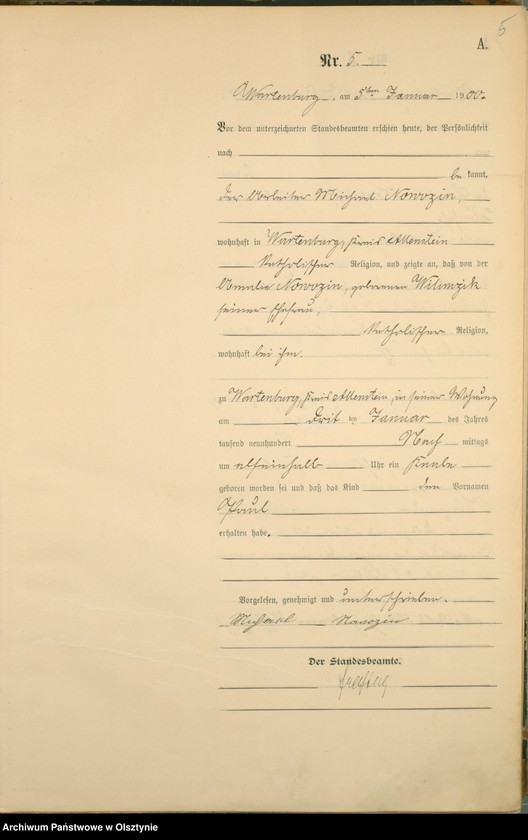 5
A.
Nr. 5.
Wartenburg, am 5ten Januar 1900.
Vor dem unterzeichneten Standesbeamten erschien heute, der Persönlichkeit
nach
be kannt,
der Arbeiter Michael Nowozin,
wohnhaft in Wartenburg, Kreis Allenstein
katholischer Religion, und zeigte an, daß von der
Amalie Nowozin, geborenen Wilimzik
seiner Ehefrau,
katholischer Religion,
wohnhaft bei ihm.
zu Wartenburg, Kreis Allenstein, in seiner Wohnung
am drit ten Januar des Jahres
tausend neunhundert Nach mittags
um elfeinhalb Uhr ein Knabe
geboren worden sei und daß das Kind den Vornamen
Paul
erhalten habe.
Vorgelesen, genehmigt und unterschrieben.
Michael Nawozin
Der Standesbeamte.
Archiwum Państwowe w Olsztynie